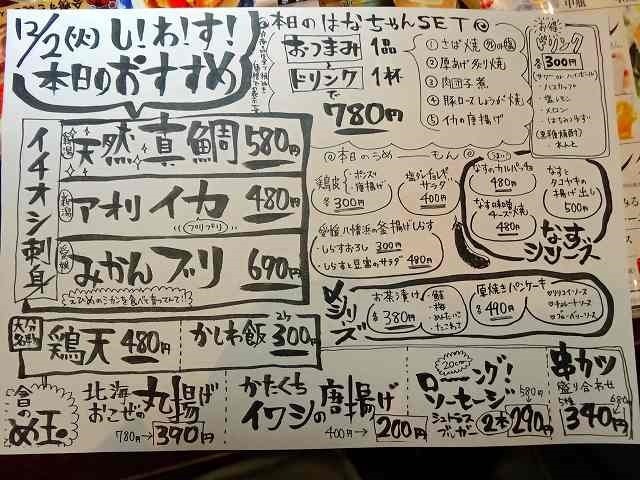 12/2(火)し!わ!す!
本日のおすすめ
イチオシ刺身
天然真鯛 580円
アオリイカ 480円
プリプリ
愛媛
みかんブリ 690円
えひめのミカンを食べて育ってて!
鶏天 480円
かしわ飯 300円
本日のはなちゃんSET
おつまみ1品
と
ドリンク1杯
で
780円
①さば焼
②厚あげねぎり焼
③肉団子煮
④豚ロースしょうが焼
⑤イカの唐揚げ
お得
ドリンク
各300円
(サワー or ハイボール)
・塩レモン
・メロン
・はちみつゆず
本日のうめーもん
鶏皮
・ポンズ
・唐揚げ
各300円
サラダ
400円
愛媛 八幡浜の釜揚げしらす
・しらすおろし 300円
・しらすと豆富のサラダ 480円
なすのカルパッチョ
480円
なす味噌チーズ焼
480円
なすとタコヤキの揚げ出し
500円
なすシリーズ
〆シリーズ
お茶漬け
各380円
・鮭
・梅
・めんたいこ
・たこわさ
厚焼きパンケーキ
各490円
北海おこぜの丸揚げ
780円→390円
かたくちイワシの唐揚げ
400円→200円
20cm
ローーング!
ソーセージ
2本
580円
290円
串カツ
盛り合わせ
5種
680円
340円